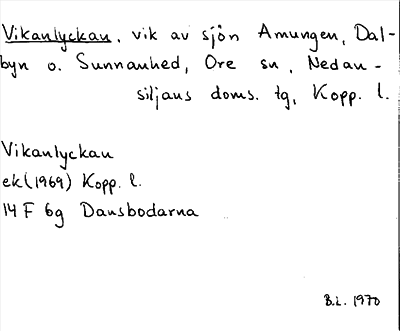 Vikanlyckan, vik av sjön Amungen, Dal-
byn o. Sunnanhed, Ore sn, Nedan-
siljans doms. tg, Kopp. l.
Vikanlyckan
ek (1969) Kopp. l.
14 F 6g Dansbodarna
B.L. 1970